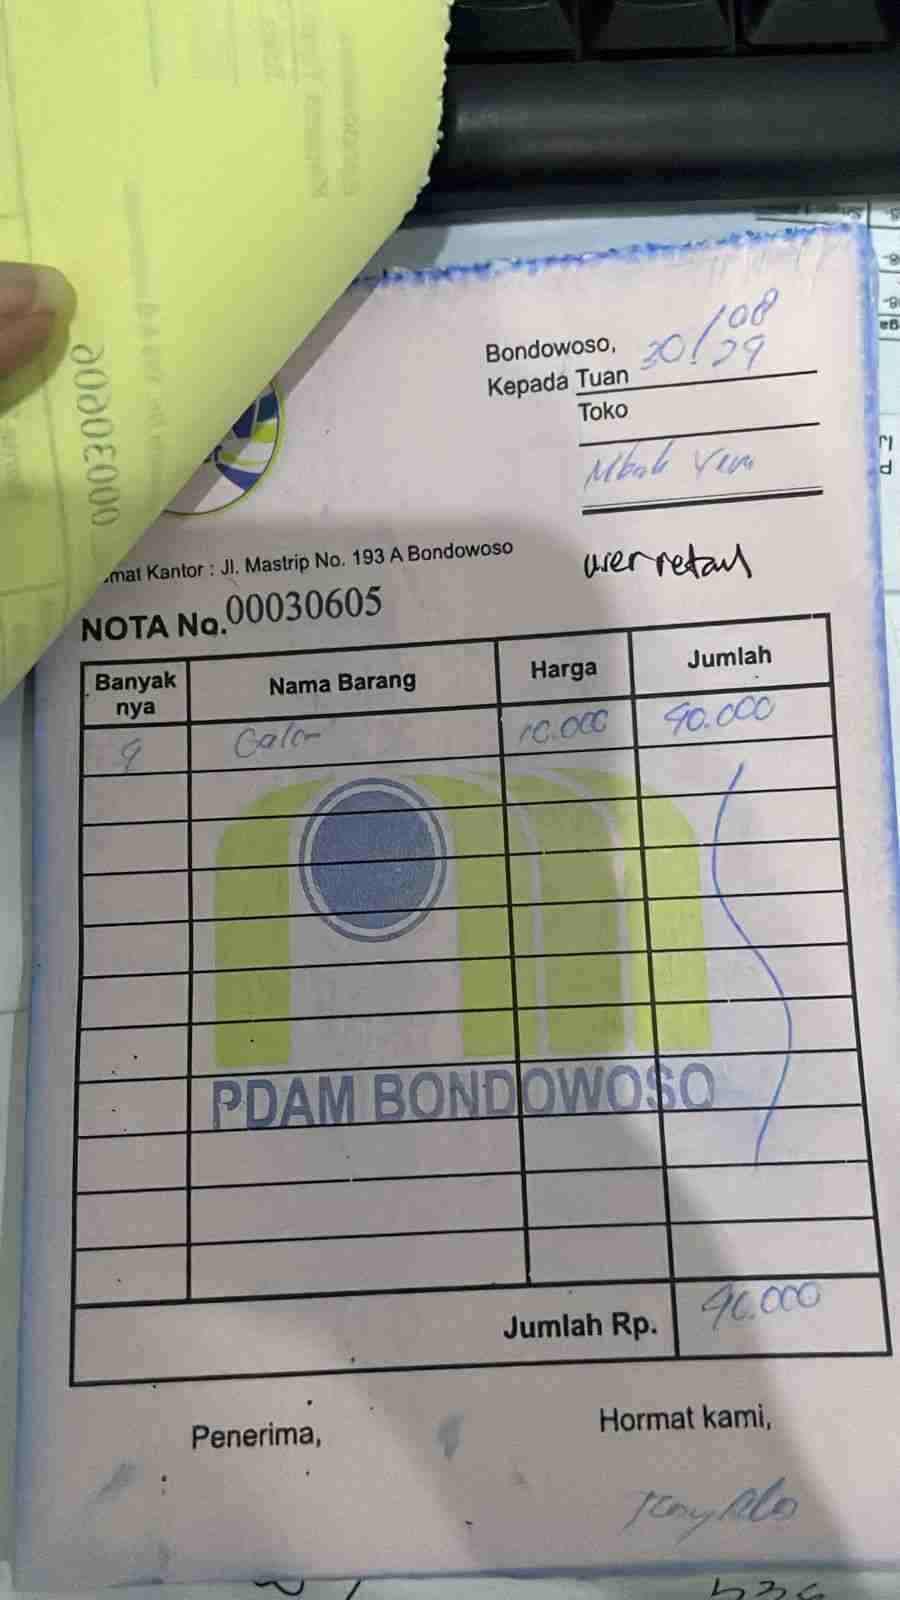 00030606
Bondowoso, 30/08
Kepada Tuan
Toko
Mbak
mat Kantor : Jl. Mastrip No. 193 A Bondowoso
user retail
NOTA No. 00030605
Banyak nya Nama Barang Harga Jumlah
4 Galon 10.000 40.000
PDAM BONDOWOSO
Jumlah Rp. 40.000
Penerima, Hormat kami,